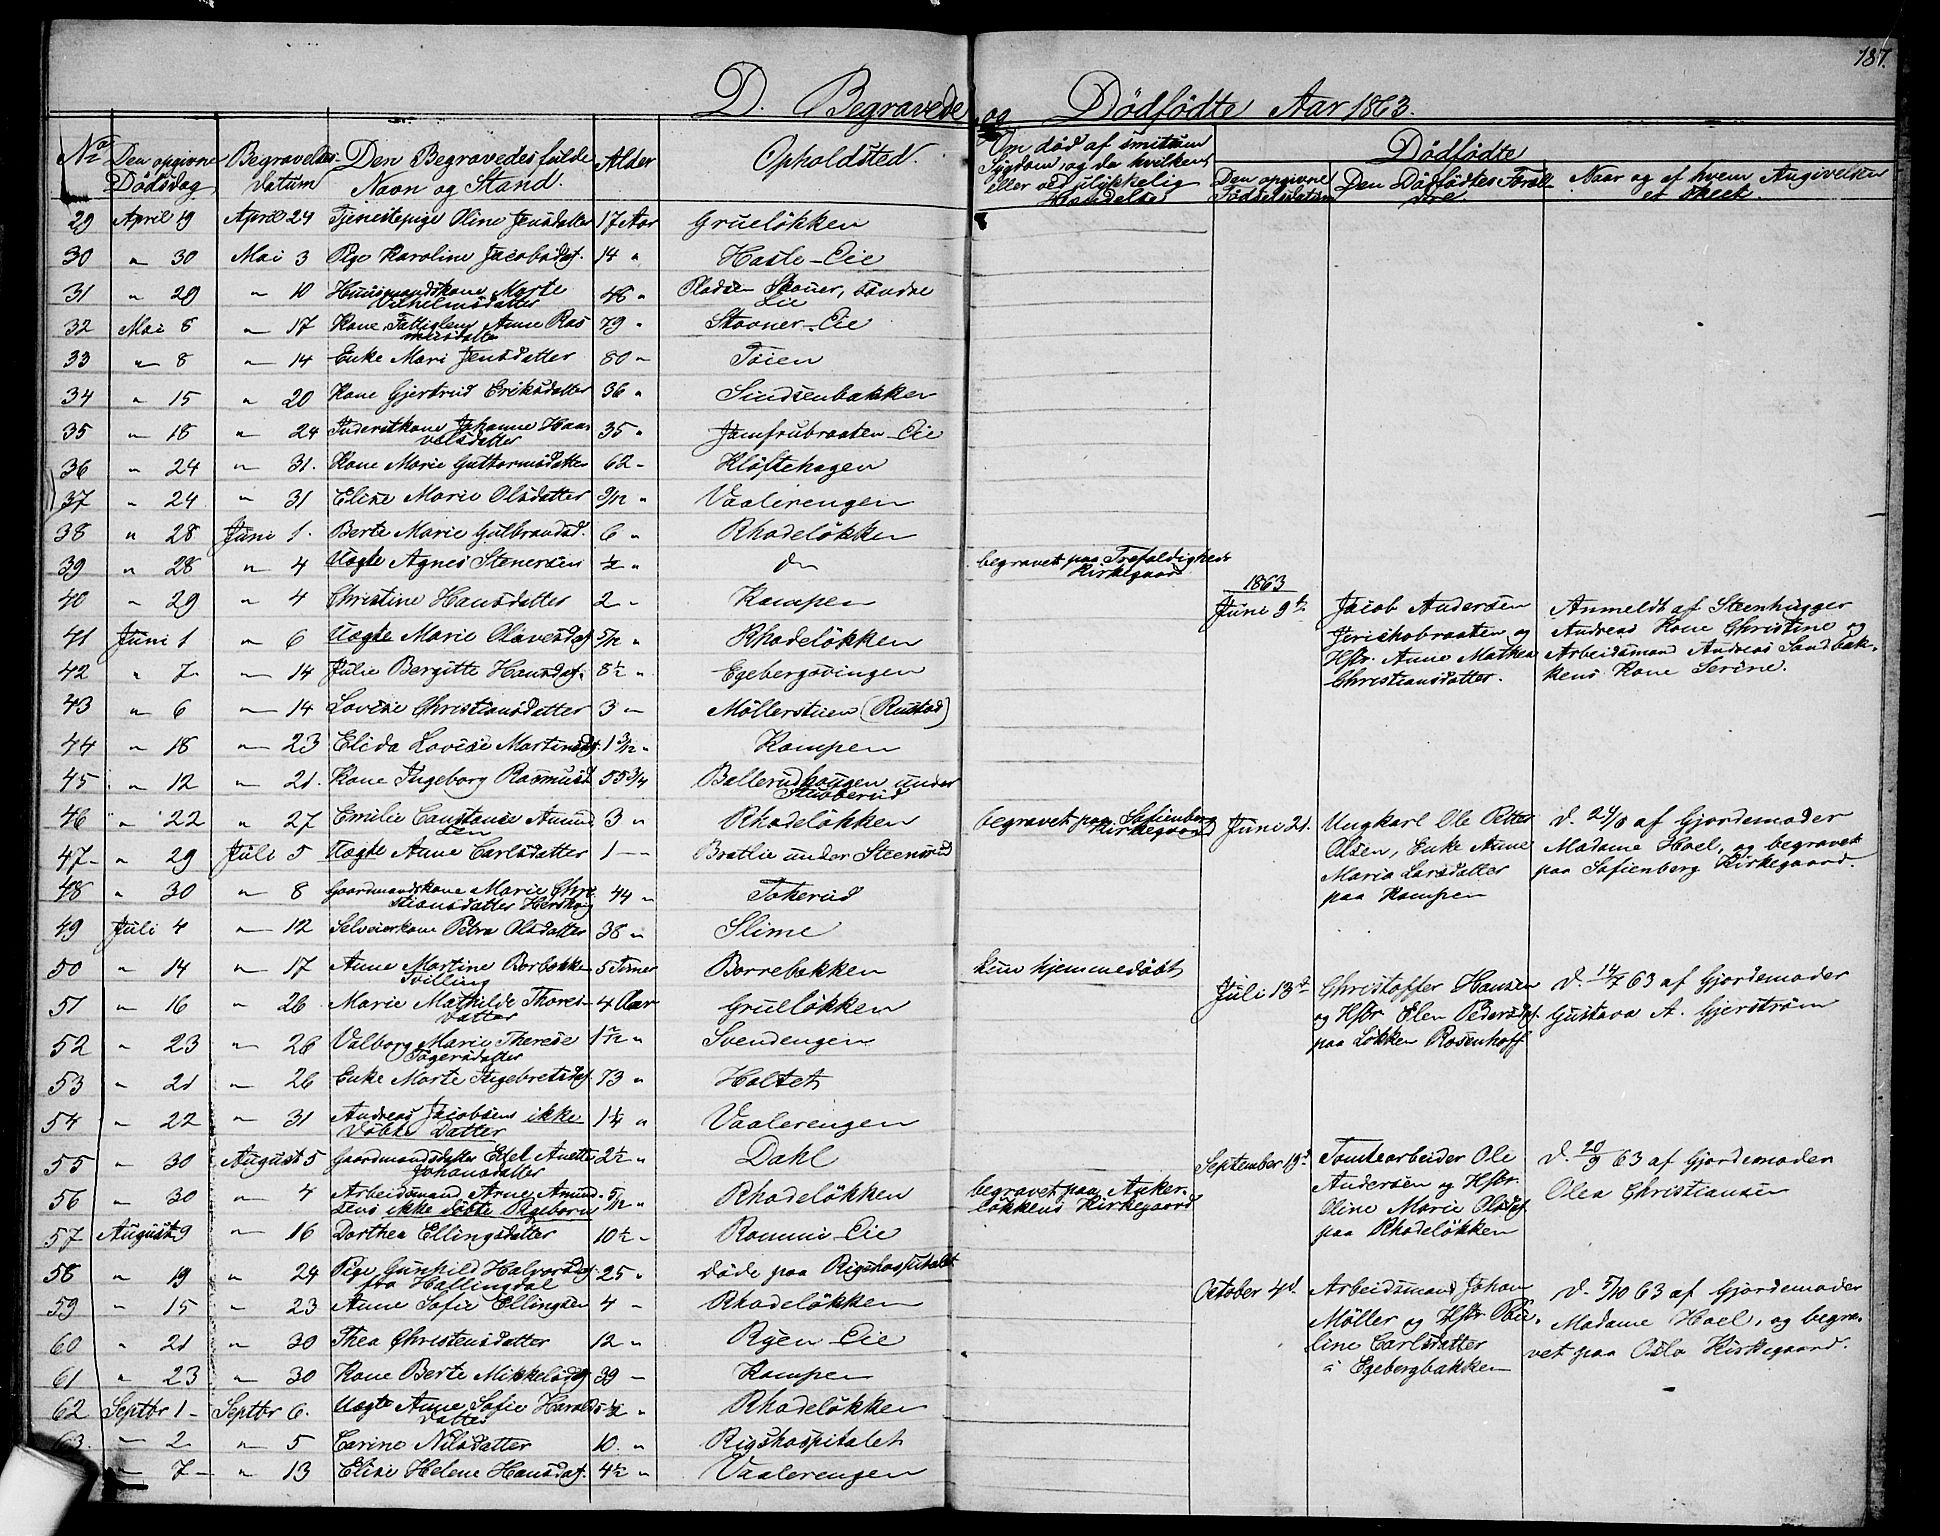 187.
D. Begravede og Dödfödte Aar 1863.
No Den opgivne Dödsdag Begravelses Datum Den Begravedes fulde Navn og Stand. Alder Opholdsted.
Om död af smitsom Sygdom, og da hvilken, eller ved ulykkelig Hændelse
Dödfödte
Den opgivne Födselsdatum Den Dödfödtes Foræl-dre Naar og af hvem Angivelsen er skeet.
29 April 19 April 24 Tjenestepige Oline Jensdatter 17 Aar Grueløkken
30 " 30 Mai 3 Pige Karoline Jacobsdat. 14 " Hasle-Eie
31 " 29 " 10 Huusmandskone Marte
Vilhelmsdatter 48 " Pladsen Skouer, Søndre
Eie
32 Mai 8 " 17 Kone Fattiglem Anne Ras
musdatter 79 " Stovner-Eie
33 " 8 " 14 Enke Mari Jensdatter 80 " Töien
34 " 15 " 20 Kone Gjertrud Eriksdatter 36 " Sindsenbakken
35 " 18 " 24 Inderstkone Johanne Haa
velsdatter 35 " Jomfrubraaten-Eie
36 " 24 " 31. Kone Marie Guttormsdatter 62 " Kløftehagen
37 " 24 " 31 Elise Marie Olsdatter 9/12 " Vaalerengen
38 " 28 Juni 1. Berte Marie Gulbrandsd. 6 " Rhodeløkken
39 " 28 " 4 Uægte Agnes Stenersen ½ " do begravet paa Trefoldigheds
Kirkegaard
40 " 29 " 4 Christine Hansdatter 2 " Kampen
41 Juni 1 " 6 Uægte Marie Olavesdat. 5/12 " Rhodeløkken
42 " 7 " 14 Julie Bergitte Hansdat. 8½ " Egebergsvingen
43 " 6 " 14 Lovise Christiansdatter 3 " Möllerstuen (Rustad)
44 " 18 " 23 Elida Lovise Martinsdat. 1 3/12 " Kampen
45 " 12 " 21. Kone Ingeborg Rasmusd. 55 3/4 Ballerudhaugen under
Stubberud
46 " 22 " 27 Emilie Constance Amund
sen 3 " Rhodeløkken begravet paa Sofienberg
Kirkegaard
47 " 29 Juli 5 Uægte Anne Carlsdatter 1 " Bratlie under Steensrud
48 " 30 " 8 Gaardmandskone Marie Chri
stiansdatter 44 " Tokerud
49 Juli 4 " 12 Selveierkone Petra Olsdatter 38 " Slime
50 " 14 " 17 Anne Martine Borbakke
Tvilling 5 Timer Borrebakken kun hjemmedöbt
51 " 16 " 26. Marie Mathilde Thores-
datter 4 Aar Grueløkken
52 " 23 " 26 Valborg Marie Therese
1 " Svendengen
53 " 21 " 26 Enke Marte Ingebretsdat. 73 " Holtet
54 " 22 " 31 Andreas Jacobsens ikke
döbte Datter 1¼ " Vaalerengen
55 " 30 August 5 Gaardmandsdatter Anette
Johansdatter 2½ " Dahl
56 " 30 " 4 Arbeidsmand Arne Amund-
sens ikke döbte Pigebarn 5/12 " Rhodeløkken begravet paa Anker-
løkkens Kirkegaard
57 August 9 " 16 Dorthea Ellingsdatter 10½ " Rommi-Eie
58 " 19 " 24 Pige Gunhild Halvorsdat.
fra Hallingdal 25 " döde paa Rigshospitalet
59 " 15 " 23 Anne Sofie Ellingsen 4 " Rhodeløkken
60 " 21 " 30 Thea Christensdatter 12 " Ryen-Eie
61 " 23 " 30 Kone Berte Mikkelsdat 39 " Kampen
62 Septbr 1 Septbr 6. Uægte Anne Sofie Harald
datter ½ " Rhodeløkken
63. " 2 " 5 Carine Nilsdatter 10. " Rigshospitalet
" 7 " 13 Elise Helene Hansdat. 4½ " Vaalerengen
1863
Juni 9de Jacob Andersen
Jerikobraaten og
Hstr. Anne Mathea
Christiansdatter.
Anmeldt af Steenhugger
Andreas Kone Christine og
Arbeidsmand Andreas Sandbak-
kens Kone Serine.
Juni 21. Ungkarl Ole Petter
Olsen, Enke Anne
Maria Larsdatter
paa Kampen
d. 24/6 af Gjordemoder
Madame Hoel, og begravet
paa Sofienberg Kirkegaard.
Juli 13de Christoffer Hansen
og Hstr. Elen Pedersdat.
paa Løkken Rosenhoff
d. 14/7 63 af Gjordemoder
Gustava A. Gjerström
September 19d Tomtearbeider Ole
Andersen og Hstr.
Oline Marie Olsdat
paa Rhodeløkken
d. 20/9 63 af Gjordemoder
Olea Christiansen
October 4d. Arbeidsmand Johan
Möller og Hstr Pau-
line Carlsdatter
i Egebergbakken
d. 5/10 63 af Gjordemoder
Madame Hoel, og begra-
vet paa Oslo Kirkegaard.